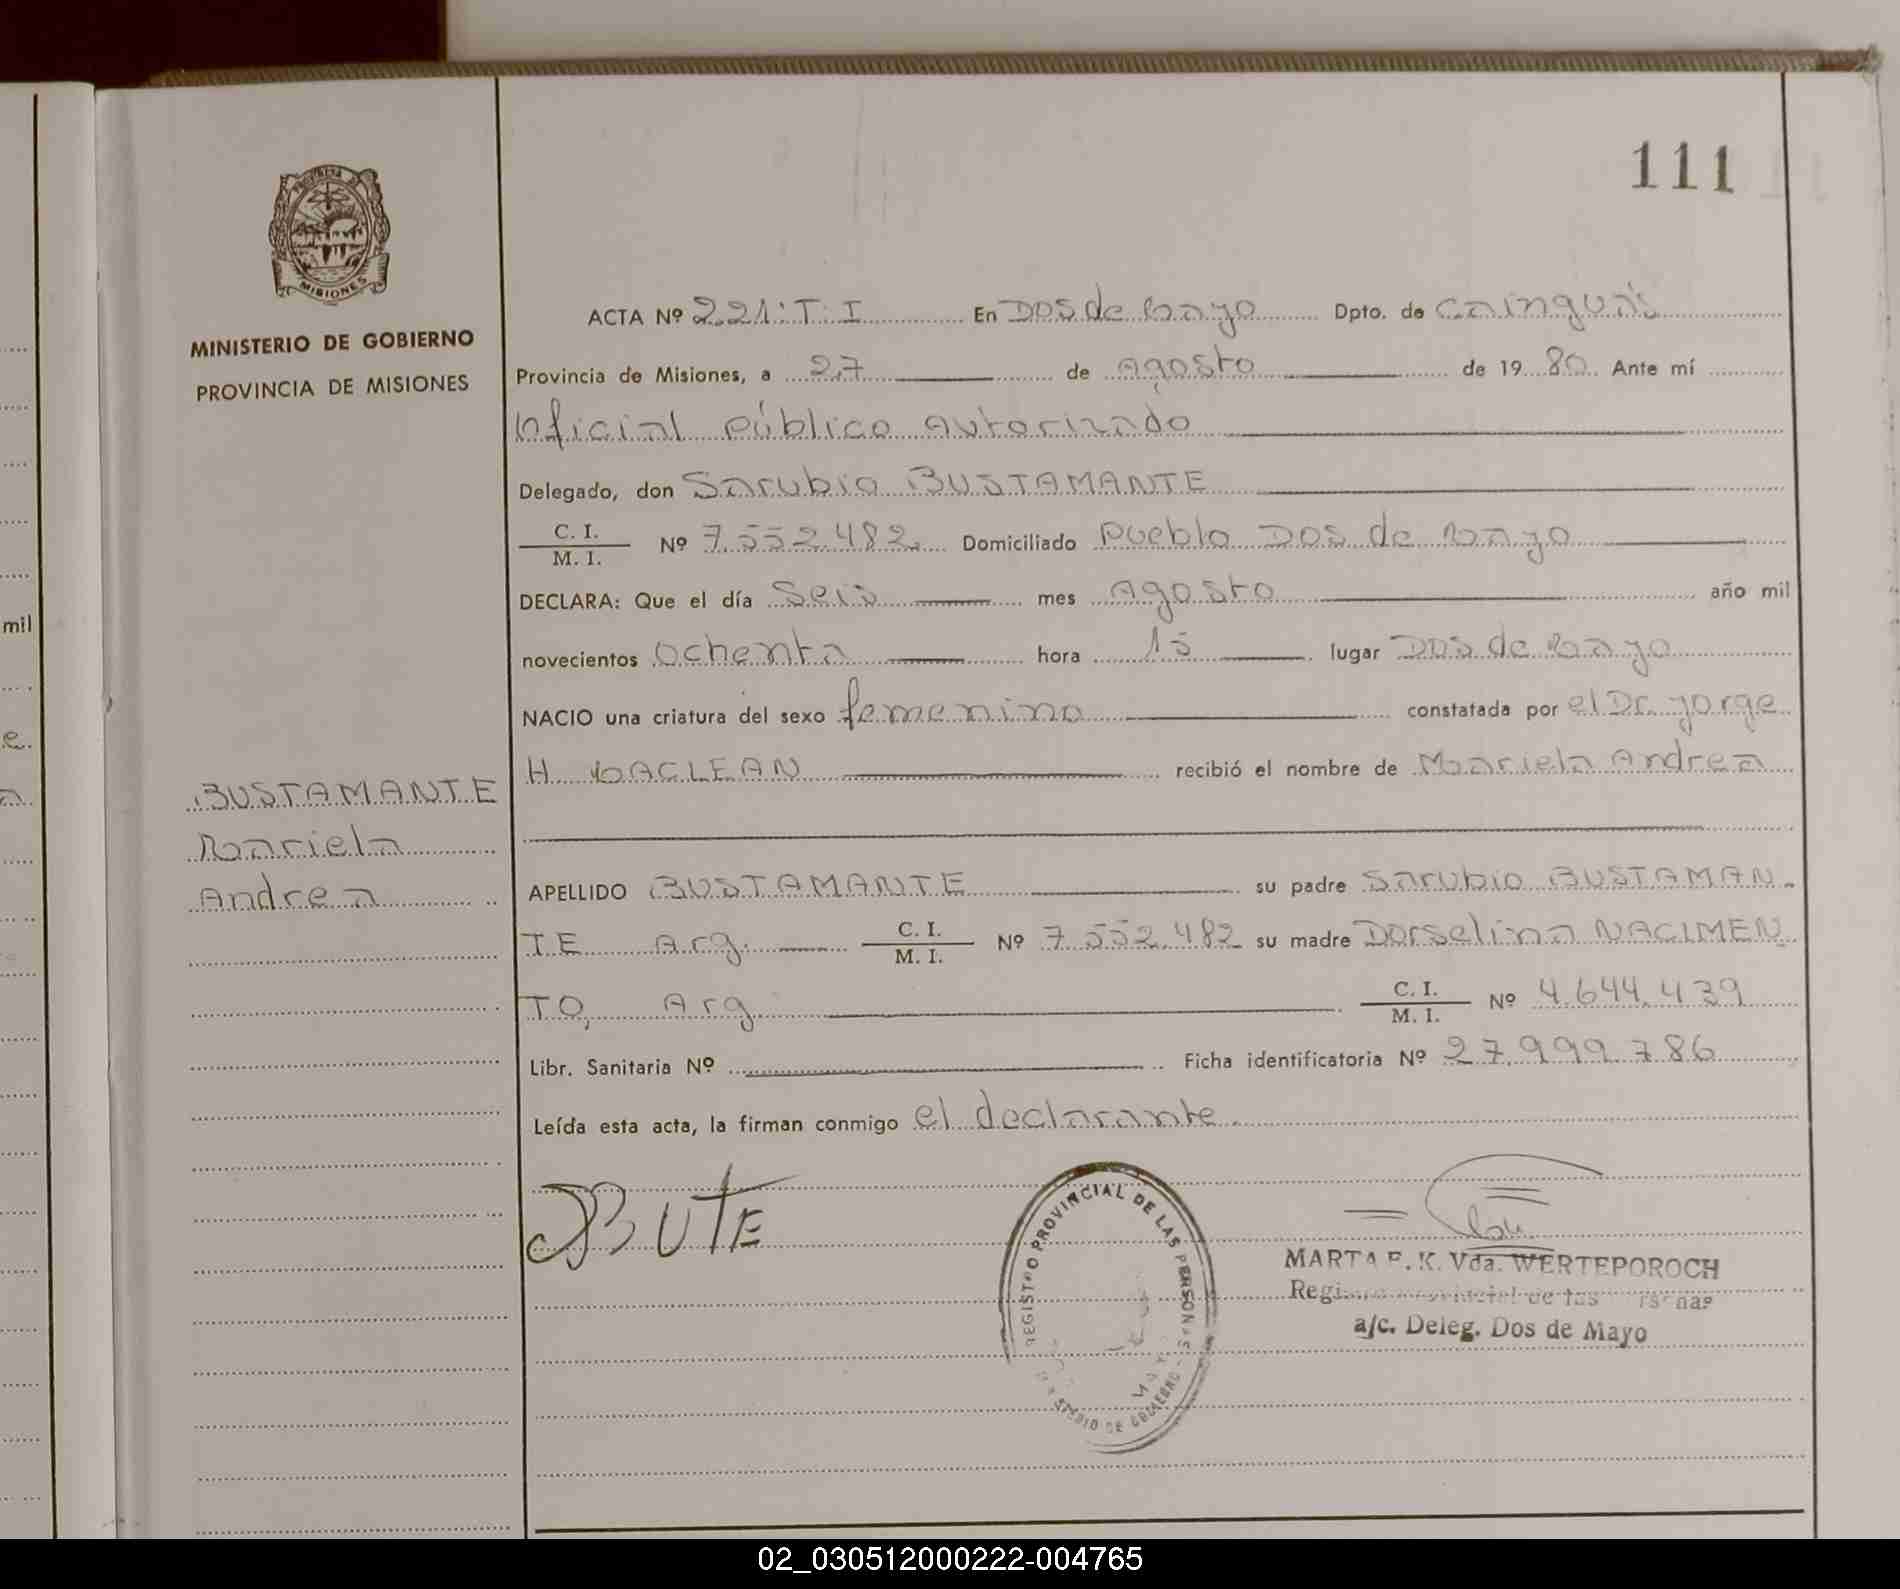 111
PROVINCIA DE
MISIONES
MINISTERIO DE GOBIERNO
PROVINCIA DE MISIONES
ACTA Nº 221:T:I En Dos de Mayo Dpto. de Cainguás
Provincia de Misiones, a 27 de Agosto de 1980 Ante mí
Oficial Público Autorizado
Delegado, don Sarubio BUSTAMANTE
C. I.
M. I. Nº 7.552.482 Domiciliado Pueblo Dos de Mayo
DECLARA: Que el día Seis mes Agosto año mil
novecientos Ochenta hora 15 lugar Dos de Mayo
NACIO una criatura del sexo femenino constatada por el Dr. Jorge
H MACLEAN recibió el nombre de Mariela Andrea
BUSTAMANTE
Mariela
Andrea
APELLIDO BUSTAMANTE su padre Sarubio BUSTAMAN
TE Arg. C. I. M. I. Nº 7.552.482 su madre Dorselina NACIMEN
TO, Arg C. I. M. I. Nº 4.644.439
Libr. Sanitaria Nº Ficha identificatoria Nº 27.999.786
Leída esta acta, la firman conmigo el declarante.
BUTE
REGISTRO PROVINCIAL DE LAS PERSONAS
MARTA E. K. Vda. WERTEPOROCH
a/c. Deleg. Dos de Mayo
mil
e
a
02_030512000222-004765